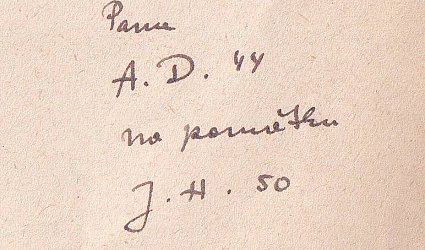 Panu
A. D. 44
na památku
J. H. 50